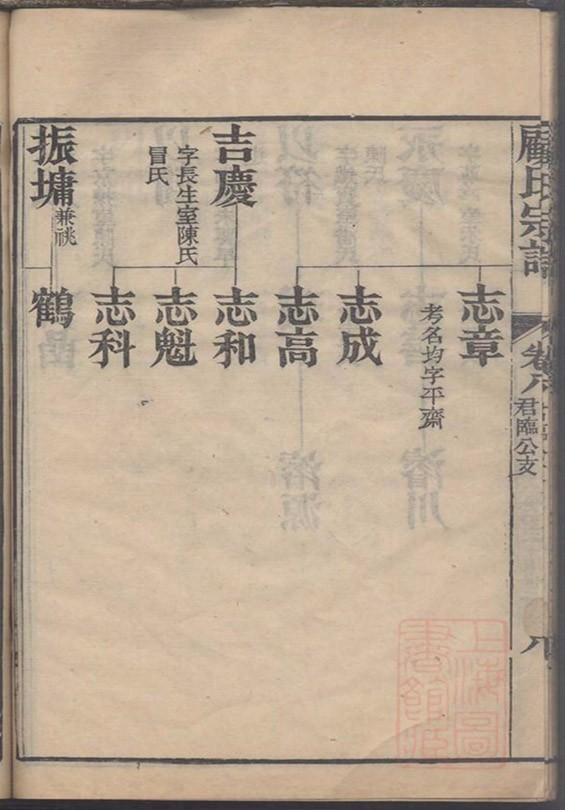 顧氏宗譜
卷六
君臨公支
志章
考名均字平齋
志成
志高
吉慶
字長生室陳氏
冒氏
志和
志魁
志科
振墉兼祧
鶴
上海圖
書館藏